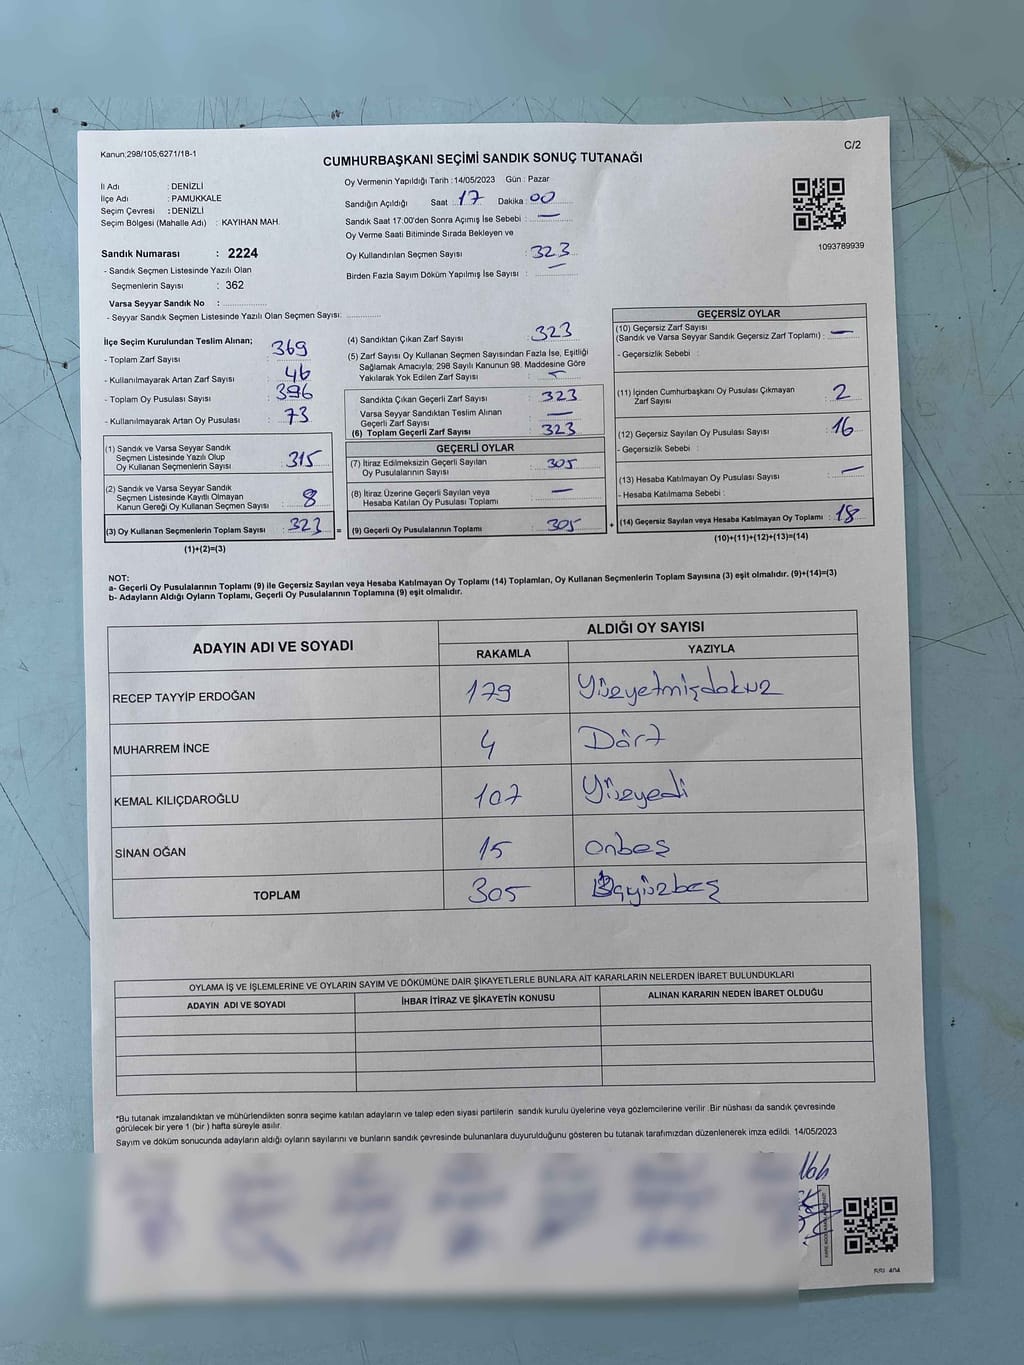 Kanun,298/105,6271/18-1
C/2
CUMHURBAŞKANI SEÇİMİ SANDIK SONUÇ TUTANAĞI
İl Adı : DENİZLİ
İlçe Adı : PAMUKKALE
Seçim Çevresi : DENİZLİ
Seçim Bölgesi (Mahalle Adı) : KAYIHAN MAH.
Sandık Numarası : 2224
- Sandık Seçmen Listesinde Yazılı Olan
Seçmenlerin Sayısı : 362
Varsa Seyyar Sandık No :
- Seyyar Sandık Seçmen Listesinde Yazılı Olan Seçmen Sayısı:
Oy Vermenin Yapıldığı Tarih :14/05/2023 Gün : Pazar
Sandığın Açıldığı Saat : 17 Dakika 00
Sandık Saat 17:00'den Sonra Açımış İse Sebebi : —
Oy Verme Saati Bitiminde Sırada Bekleyen ve
Oy Kullandırılan Seçmen Sayısı : 323
Birden Fazla Sayım Döküm Yapılmış İse Sayısı : —
1093789939
İlçe Seçim Kurulundan Teslim Alınan;
- Toplam Zarf Sayısı : 369
- Kullanılmayarak Artan Zarf Sayısı : 46
- Toplam Oy Pusulası Sayısı : 396
- Kullanılmayarak Artan Oy Pusulası : 73
(1) Sandık ve Varsa Seyyar Sandık
Seçmen Listesinde Yazılı Olup
Oy Kullanan Seçmenlerin Sayısı : 315
(2) Sandık ve Varsa Seyyar Sandık
Seçmen Listesinde Kayıtlı Olmayan
Kanun Gereği Oy Kullanan Seçmen Sayısı : 8
(3) Oy Kullanan Seçmenlerin Toplam Sayısı : 323 =
(1)+(2)=(3)
(4) Sandıktan Çıkan Zarf Sayısı : 323
(5) Zarf Sayısı Oy Kullanan Seçmen Sayısından Fazla İse, Eşitliği
Sağlamak Amacıyla; 298 Sayılı Kanunun 98. Maddesine Göre
Yakılarak Yok Edilen Zarf Sayısı : —
Sandıkta Çıkan Geçerli Zarf Sayısı : 323
Varsa Seyyar Sandıktan Teslim Alınan
Geçerli Zarf Sayısı : —
(6) Toplam Geçerli Zarf Sayısı : 323
GEÇERLİ OYLAR
(7) İtiraz Edilmeksizin Geçerli Sayılan
Oy Pusulalarının Sayısı : 305
(8) İtiraz Üzerine Geçerli Sayılan veya
Hesaba Katılan Oy Pusulası Toplamı : —
(9) Geçerli Oy Pusulalarının Toplamı : 305 +
GEÇERSİZ OYLAR
(10) Geçersiz Zarf Sayısı
(Sandık ve Varsa Seyyar Sandık Geçersiz Zarf Toplamı) : —
- Geçersizlik Sebebi :
(11) İçinden Cumhurbaşkanı Oy Pusulası Çıkmayan
Zarf Sayısı : 2
(12) Geçersiz Sayılan Oy Pusulası Sayısı : 16
- Geçersizlik Sebebi :
(13) Hesaba Katılmayan Oy Pusulası Sayısı : —
- Hesaba Katılmama Sebebi :
(14) Geçersiz Sayılan veya Hesaba Katılmayan Oy Toplamı : 18
(10)+(11)+(12)+(13)=(14)
NOT:
a- Geçerli Oy Pusulalarının Toplamı (9) ile Geçersiz Sayılan veya Hesaba Katılmayan Oy Toplamı (14) Toplamları, Oy Kullanan Seçmenlerin Toplam Sayısına (3) eşit olmalıdır. (9)+(14)=(3)
b- Adayların Aldığı Oyların Toplamı, Geçerli Oy Pusulalarının Toplamına (9) eşit olmalıdır.
ADAYIN ADI VE SOYADI
ALDIĞI OY SAYISI
RAKAMLA YAZIYLA
RECEP TAYYİP ERDOĞAN 179 Yüzyetmişdokuz
MUHARREM İNCE 4 Dört
KEMAL KILIÇDAROĞLU 107 Yüzyedi
SİNAN OĞAN 15 Onbeş
TOPLAM 305 Üçyüzbeş
OYLAMA İŞ VE İŞLEMLERİNE VE OYLARIN SAYIM VE DÖKÜMÜNE DAİR ŞİKAYETLERLE BUNLARA AİT KARARLARIN NELERDEN İBARET BULUNDUKLARI
ADAYIN ADI VE SOYADI İHBAR İTİRAZ VE ŞİKAYETİN KONUSU ALINAN KARARIN NEDEN İBARET OLDUĞU
*Bu tutanak imzalandıktan ve mühürlendikten sonra seçime katılan adayların ve talep eden siyasi partilerin sandık kurulu üyelerine veya gözlemcilerine verilir .Bir nüshası da sandık çevresinde
görülecek bir yere 1 (bir ) hafta süreyle asılır.
Sayım ve döküm sonucunda adayların aldığı oyların sayılarını ve bunların sandık çevresinde bulunanlara duyurulduğunu gösteren bu tutanak tarafımızdan düzenlenerek imza edildi. 14/05/2023